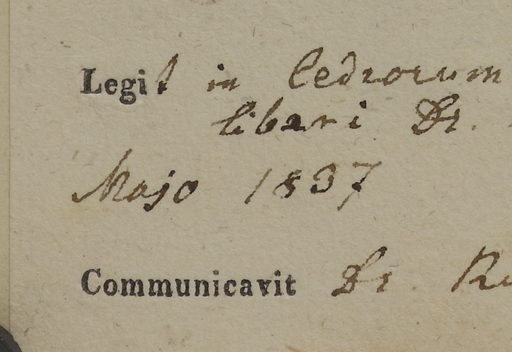 Legit in Cedrorum
libani Dr.
Majo 1837
Communicavit Dr.